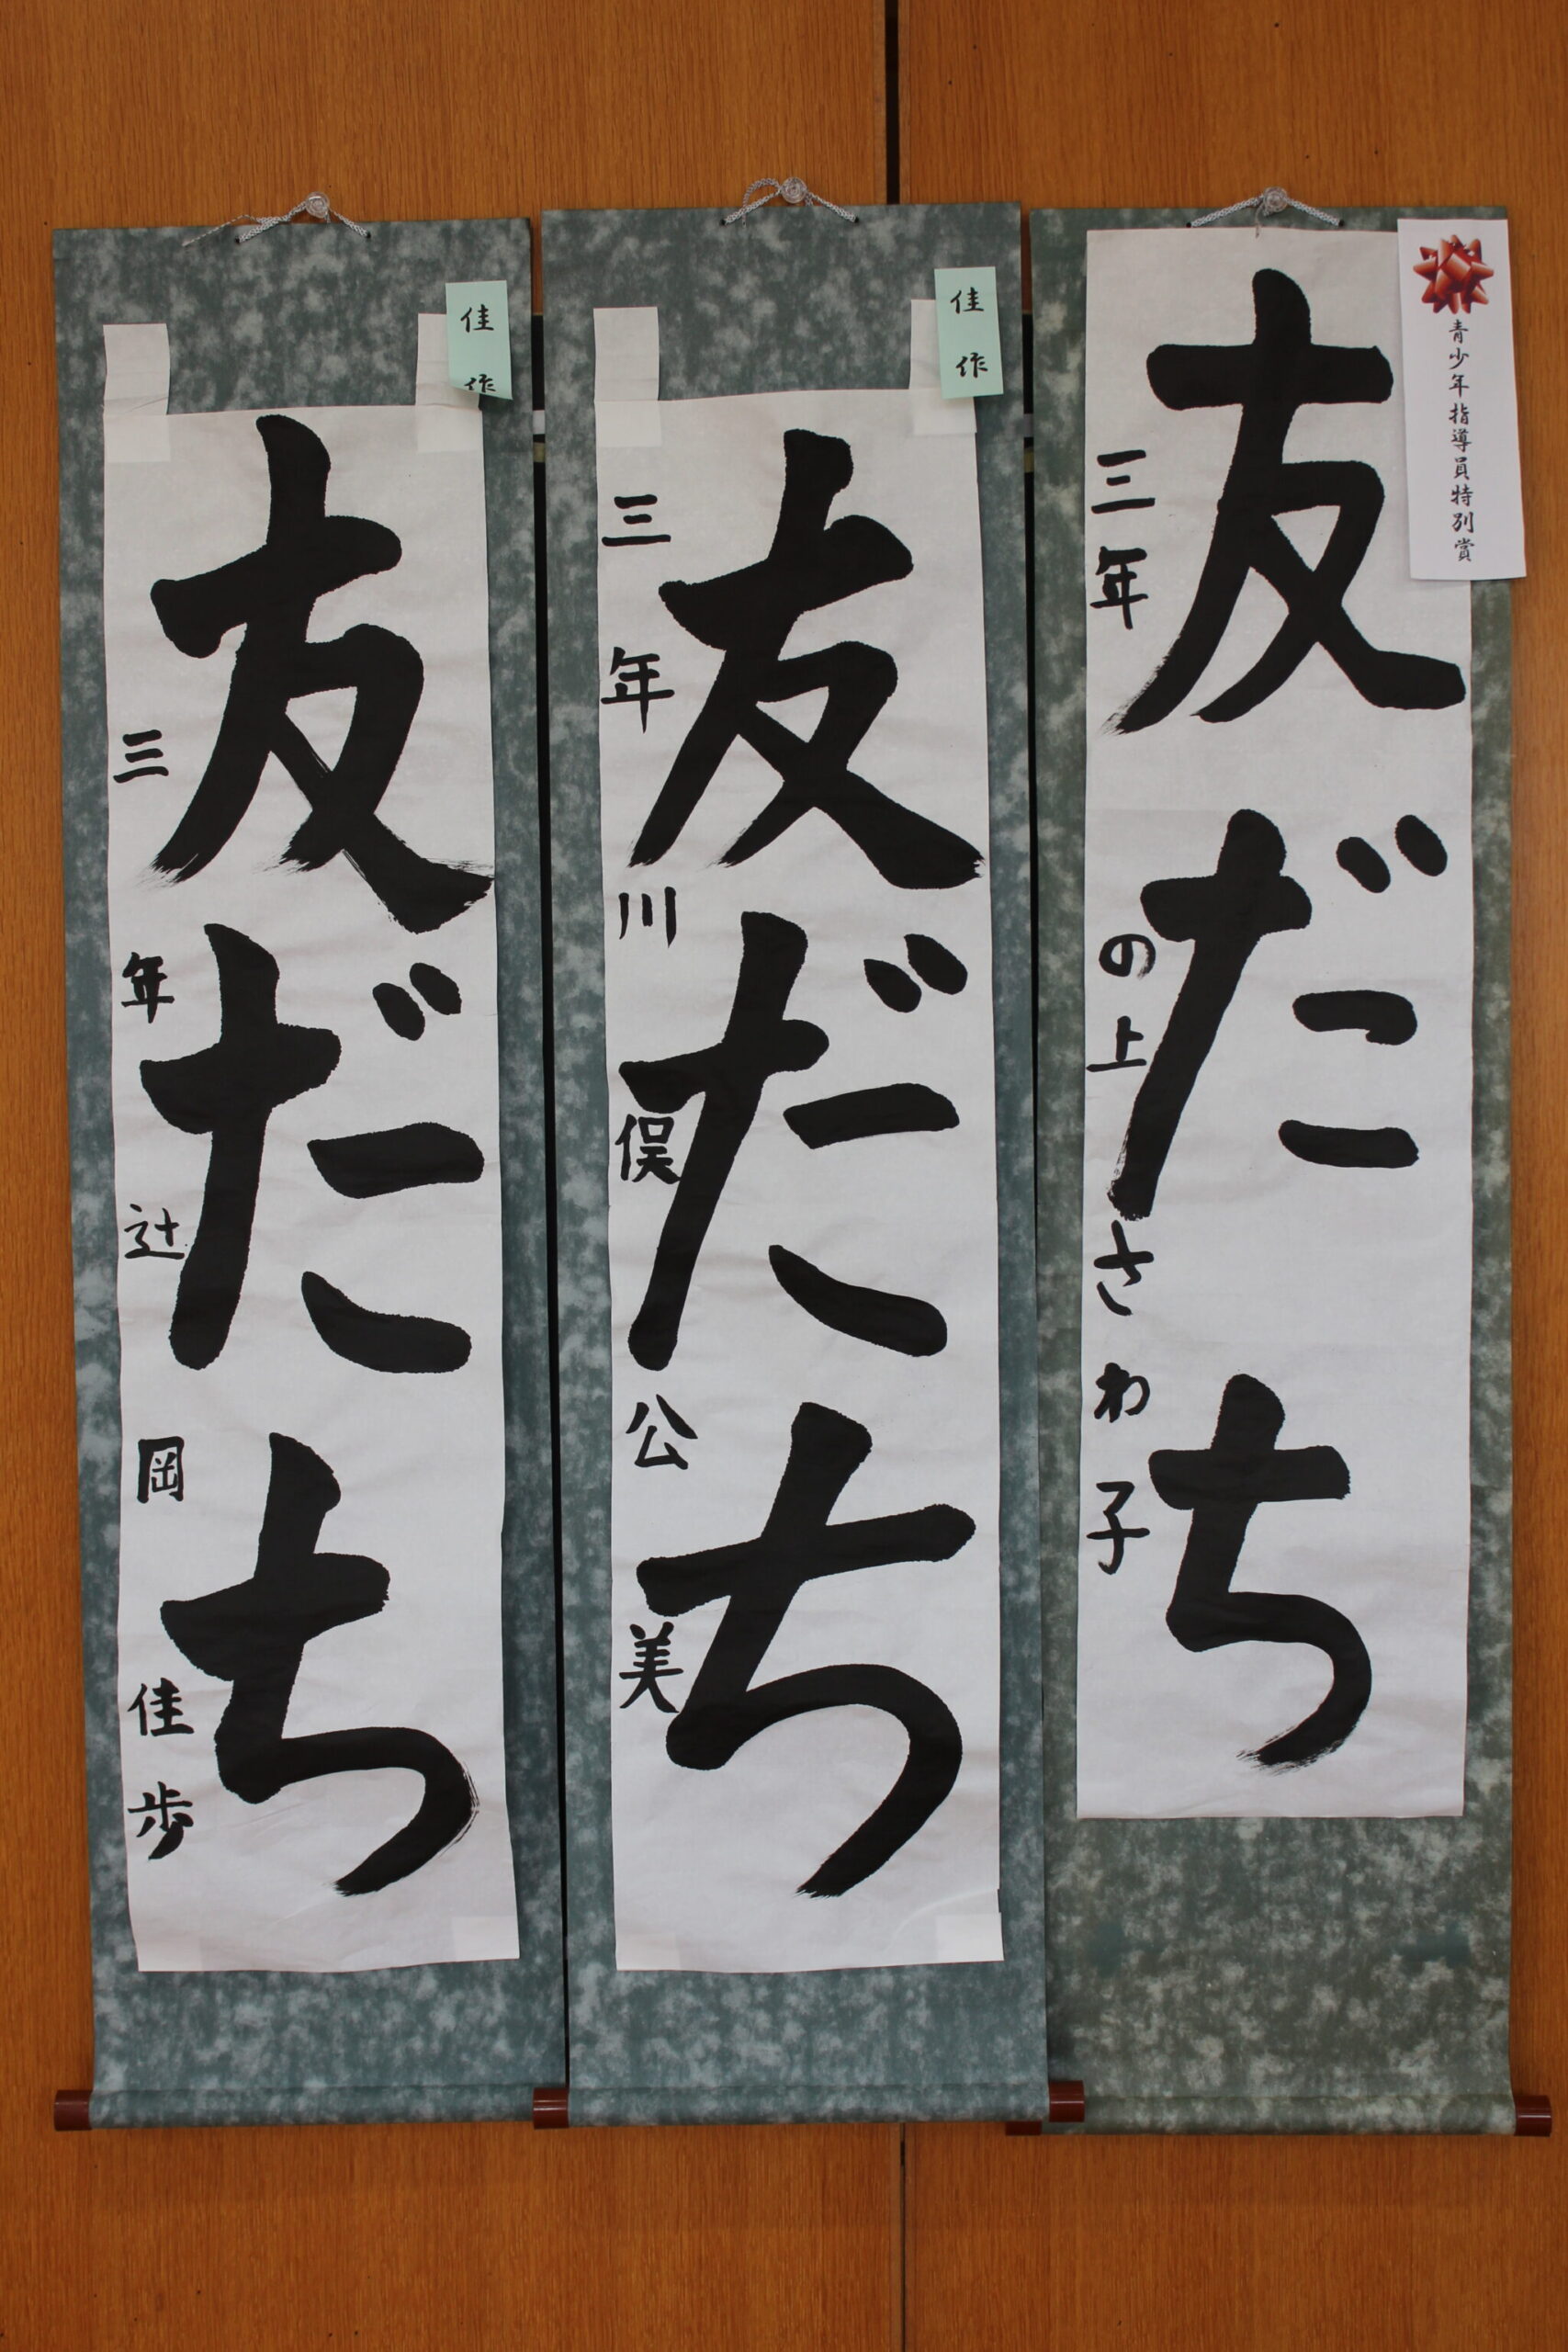 青少年指導員特別賞
友だち
三年 の上さわ子
佳作
友だち
三年 川俣公美
佳作
友だち
三年 辻岡佳歩